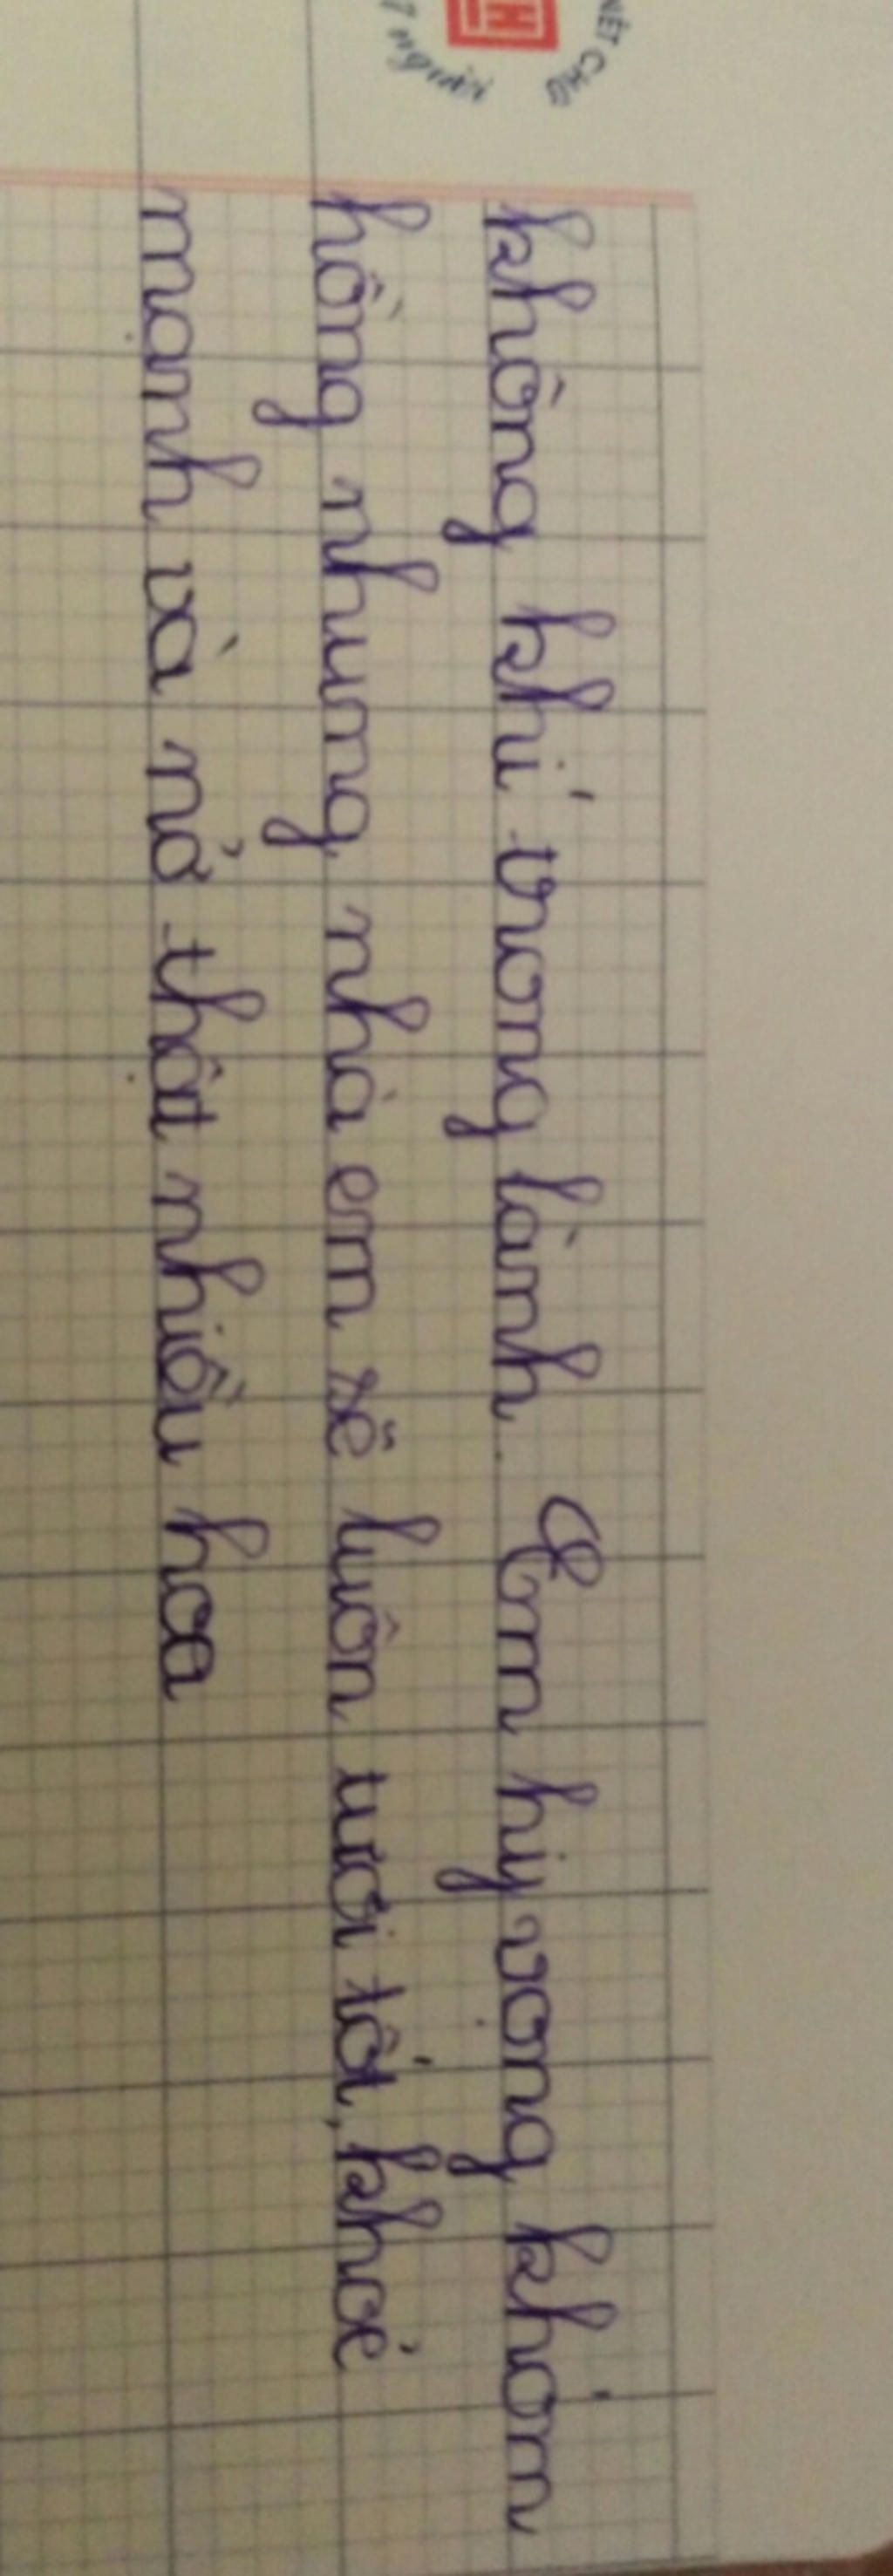 NÉT CHỮ
NGƯỜI
không khí trong lành. Em hy vọng khóm
hồng nhung nhà em sẽ luôn tươi tốt, khoẻ
mạnh và nở thật nhiều hoa